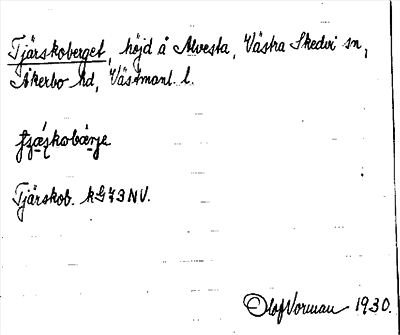 Tjärskoberget, höjd å Alvesta, Västra Skedvi sn,
Åkerbo hd, Västmanl. l.
Tjärskob. kG73NV.
Olof Vorman 1930.